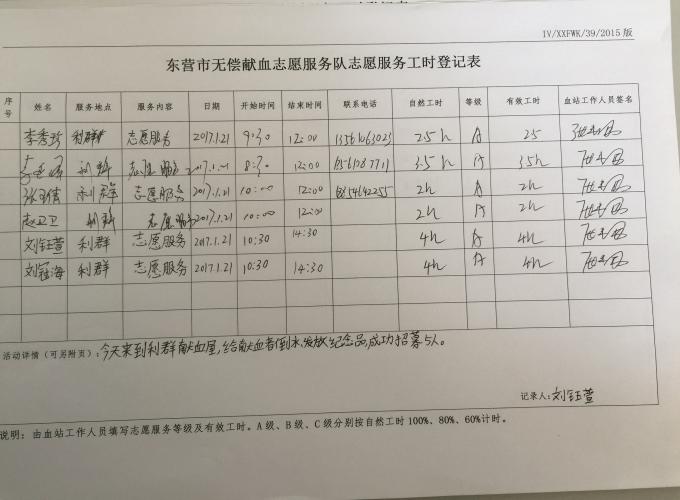 IV/XXFWK/39/2015版
东营市无偿献血志愿服务队志愿服务工时登记表
序号 姓名 服务地点 服务内容 日期 开始时间 结束时间 联系电话 自然工时 等级 有效工时 血站工作人员签名
李秀珍 利群 志愿服务 2017.1.21 9:30 12:00 2.5h A 25
利群 志愿服务 2017.1.21 8:30 12:00 3.5h A 3.5h
利群 志愿服务 2017.1.21 10:00 12:00 2h A 2h
赵卫卫 利群 志愿服务 2017.1.21 10:00 12:00 2h A 2h
刘钰萱 利群 志愿服务 2017.1.21 10:30 14:30 4h A 4h
刘冠海 利群 志愿服务 2017.1.21 10:30 14:30 4h A 4h
活动详情（可另附页）：今天来到利群献血屋,给献血者倒水,发放纪念品,成功招募5人。
记录人:刘钰萱
说明：由血站工作人员填写志愿服务等级及有效工时。A级、B级、C级分别按自然工时100%、80%、60%计时。